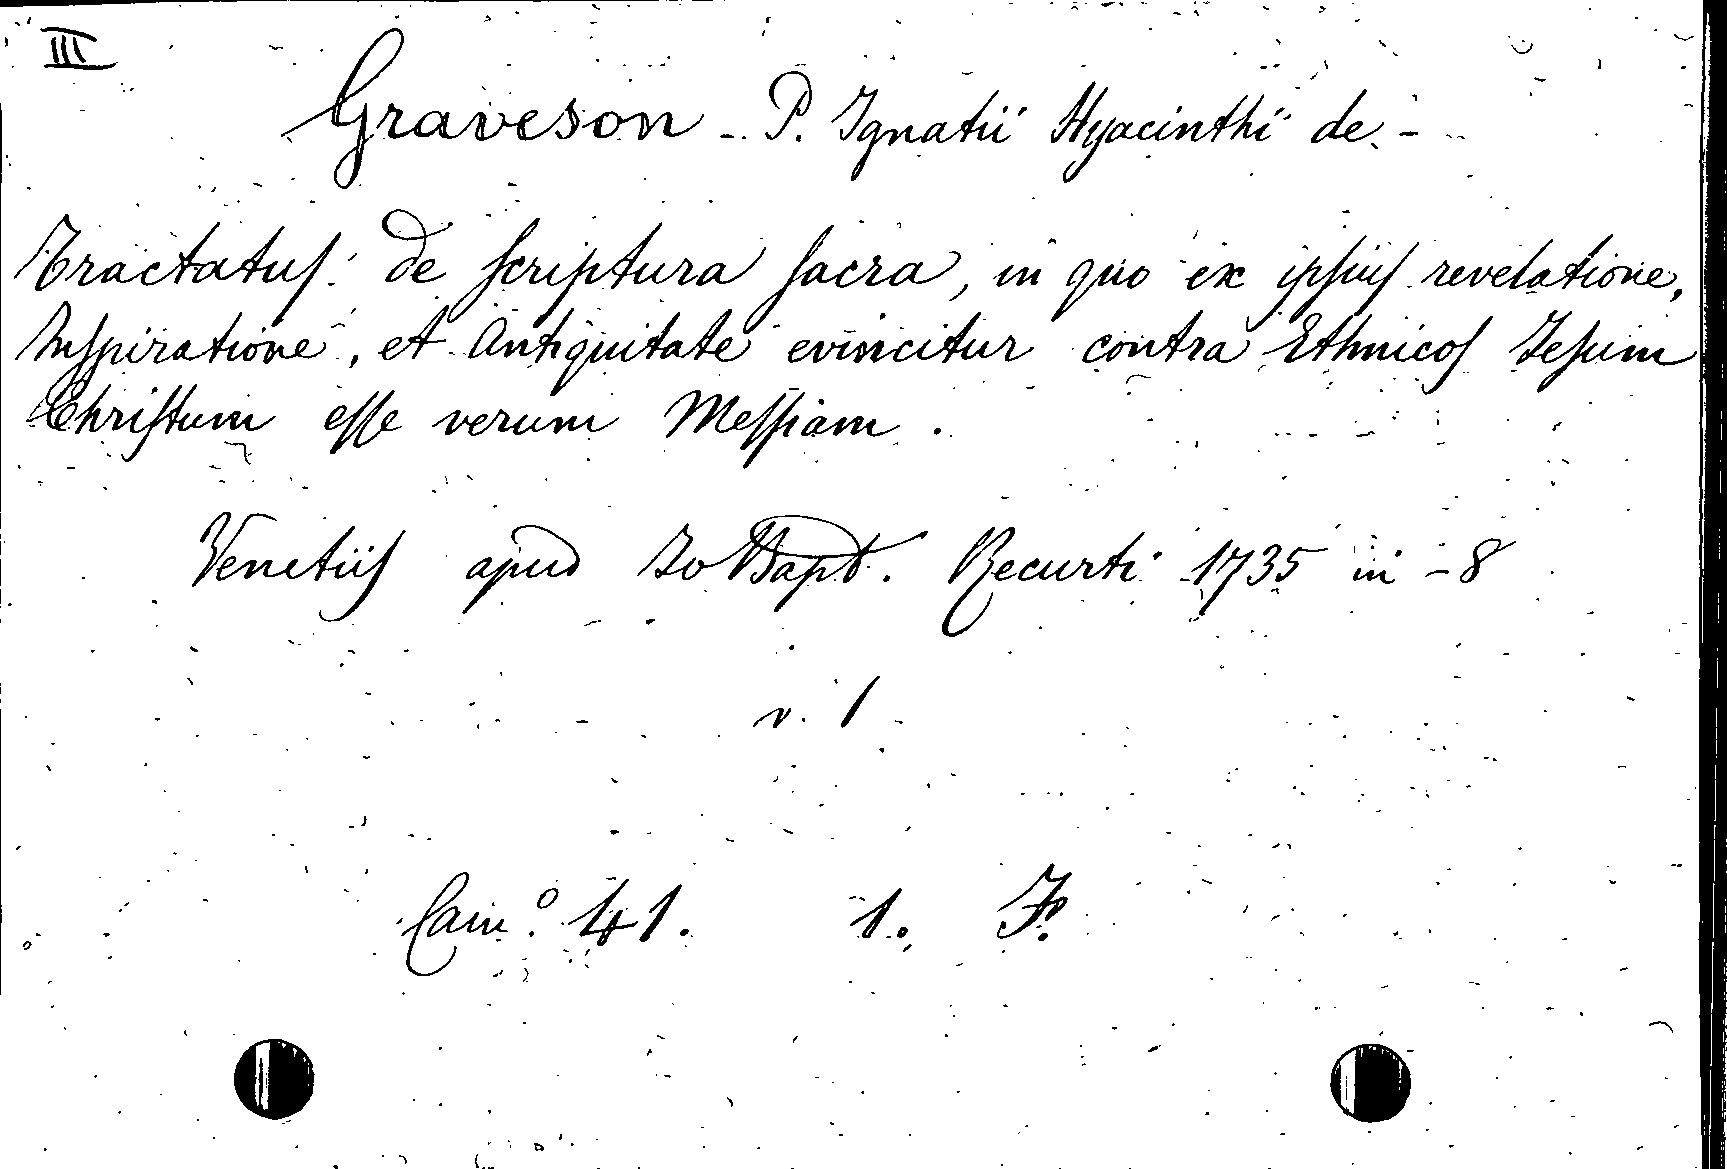 III
Graveson - P. Ignatii Hyacinthi de -
Tractatus de scriptura sacra, in quo ex ipsius revelatione,
Inspiratione, et Antiquitate evincitur contra Ethnicos Jesum
Christum esse verum Messiam.
Venetiis apud Jo Bapt. Recurti 1735 in -8
v. 1
Cam.º 41. 1. F.